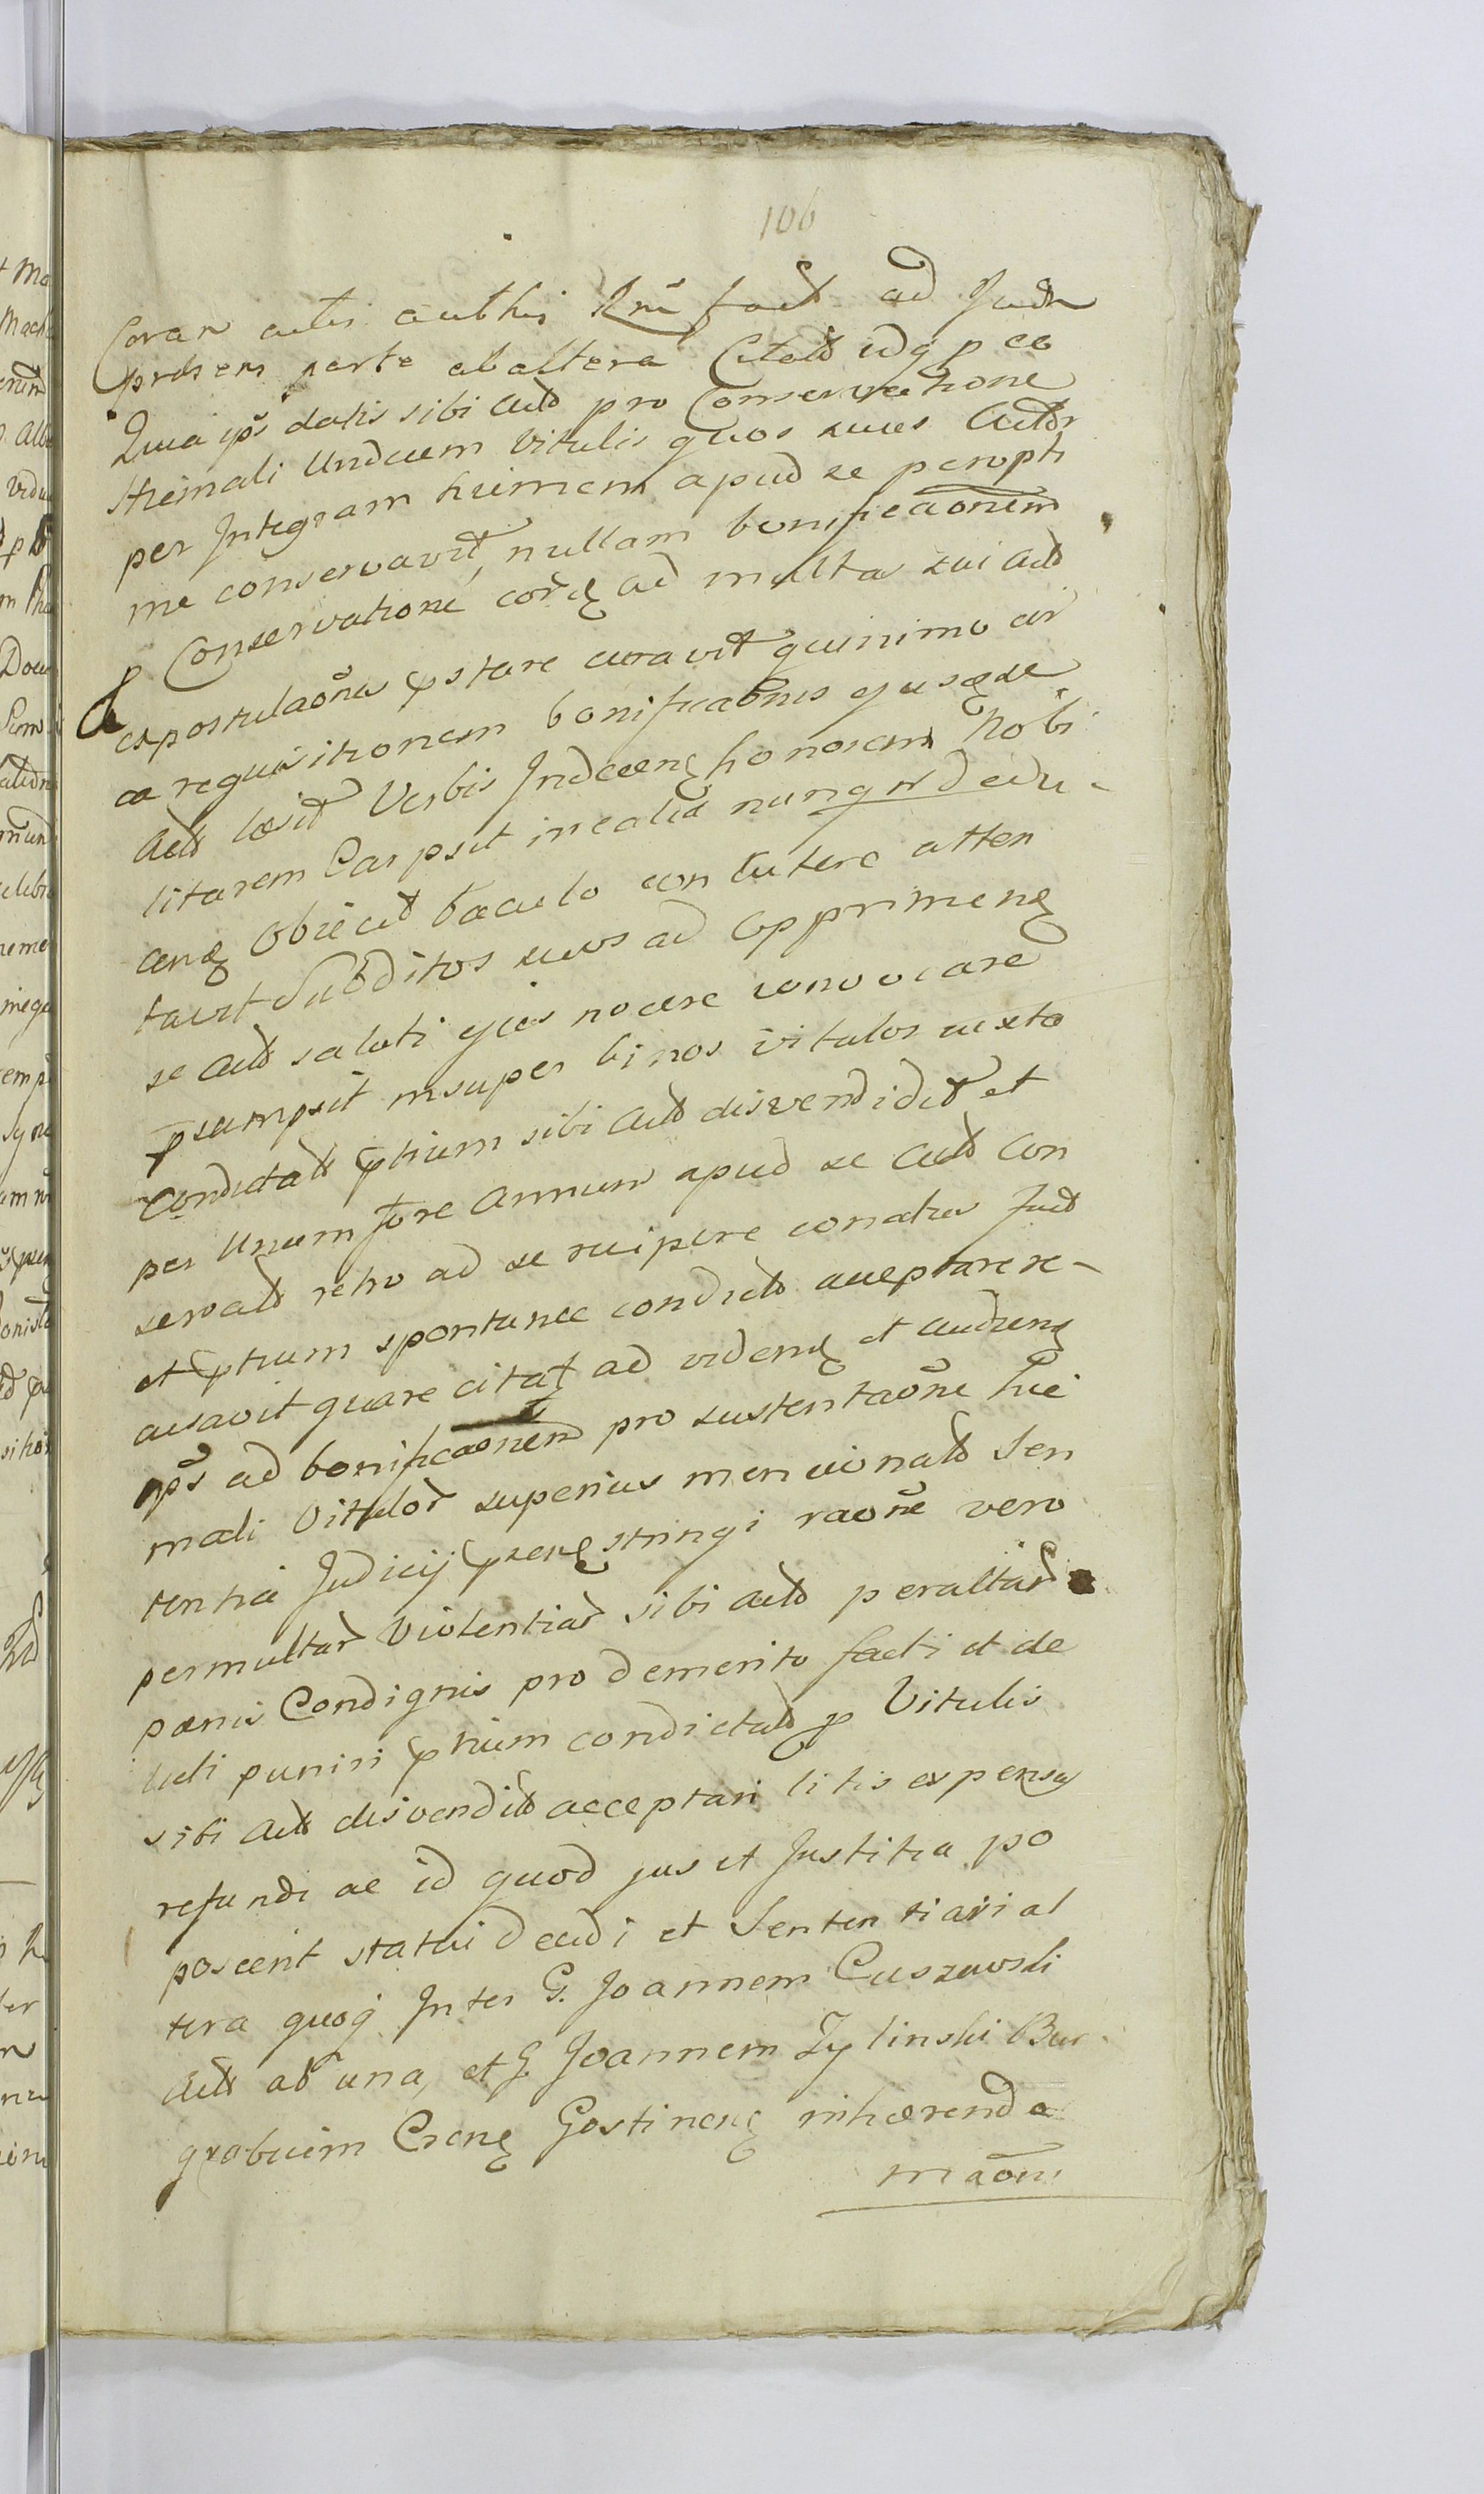 106
Coran actis authis Rñi fact ad Judn
prãsens parte ab altera Citatt idq p eo
Quia ips datis sibi Actt pro Conservatione
Hiemali Undecem Vitulis quos suus Acttr
per Integram hiemem apud se peropti
me conservavit, nullam bonificaõnem
p Conservatione eorq ad multas sui Actt
expostulaõnes pstare curavit quinimo cir
ca requisitionem bonificaõnis ejusqde
Actt læsit Verbis Indecenq honorem Nobi
litarem Carpsit in calid nunq ded
cenq Obiecit baculo contutere atten
tavit Subditos suos ad Opprimenq
se Actt saluti ejus nocere convocare
psumpsit insuper binos vitulos iuxta
Condictatt ptium sibi Actt disvendidit et
per Unum fore Annum apud se Actt con
servatt retro ad se recipere conatus fuit
et ptium spontanee condictt acceptare re-
cusavit quare citat ad videnq et audienq
ips ad bonificaõnem pro sustentaõne hie
mali Vitulor superius mencionatt Sen
tentia Judicij psenq stringi raõne vero
permultar Violentiar sibi Actt perallar
pænis Condignis pro demerito facti et de
licti puniri ptium condictatt p Vitulis
sibi Actt disvenditt acceptari litis expensas
refundi ac id quod jus et Justitia po
poscerit statui decidi et Sententiari al
tera quoq Inter G. Joannem Cuszewski
Actt ab una, et G. Joannem Zylinski Bur
grabium Crenq Gostinenq inhærenda
maõni